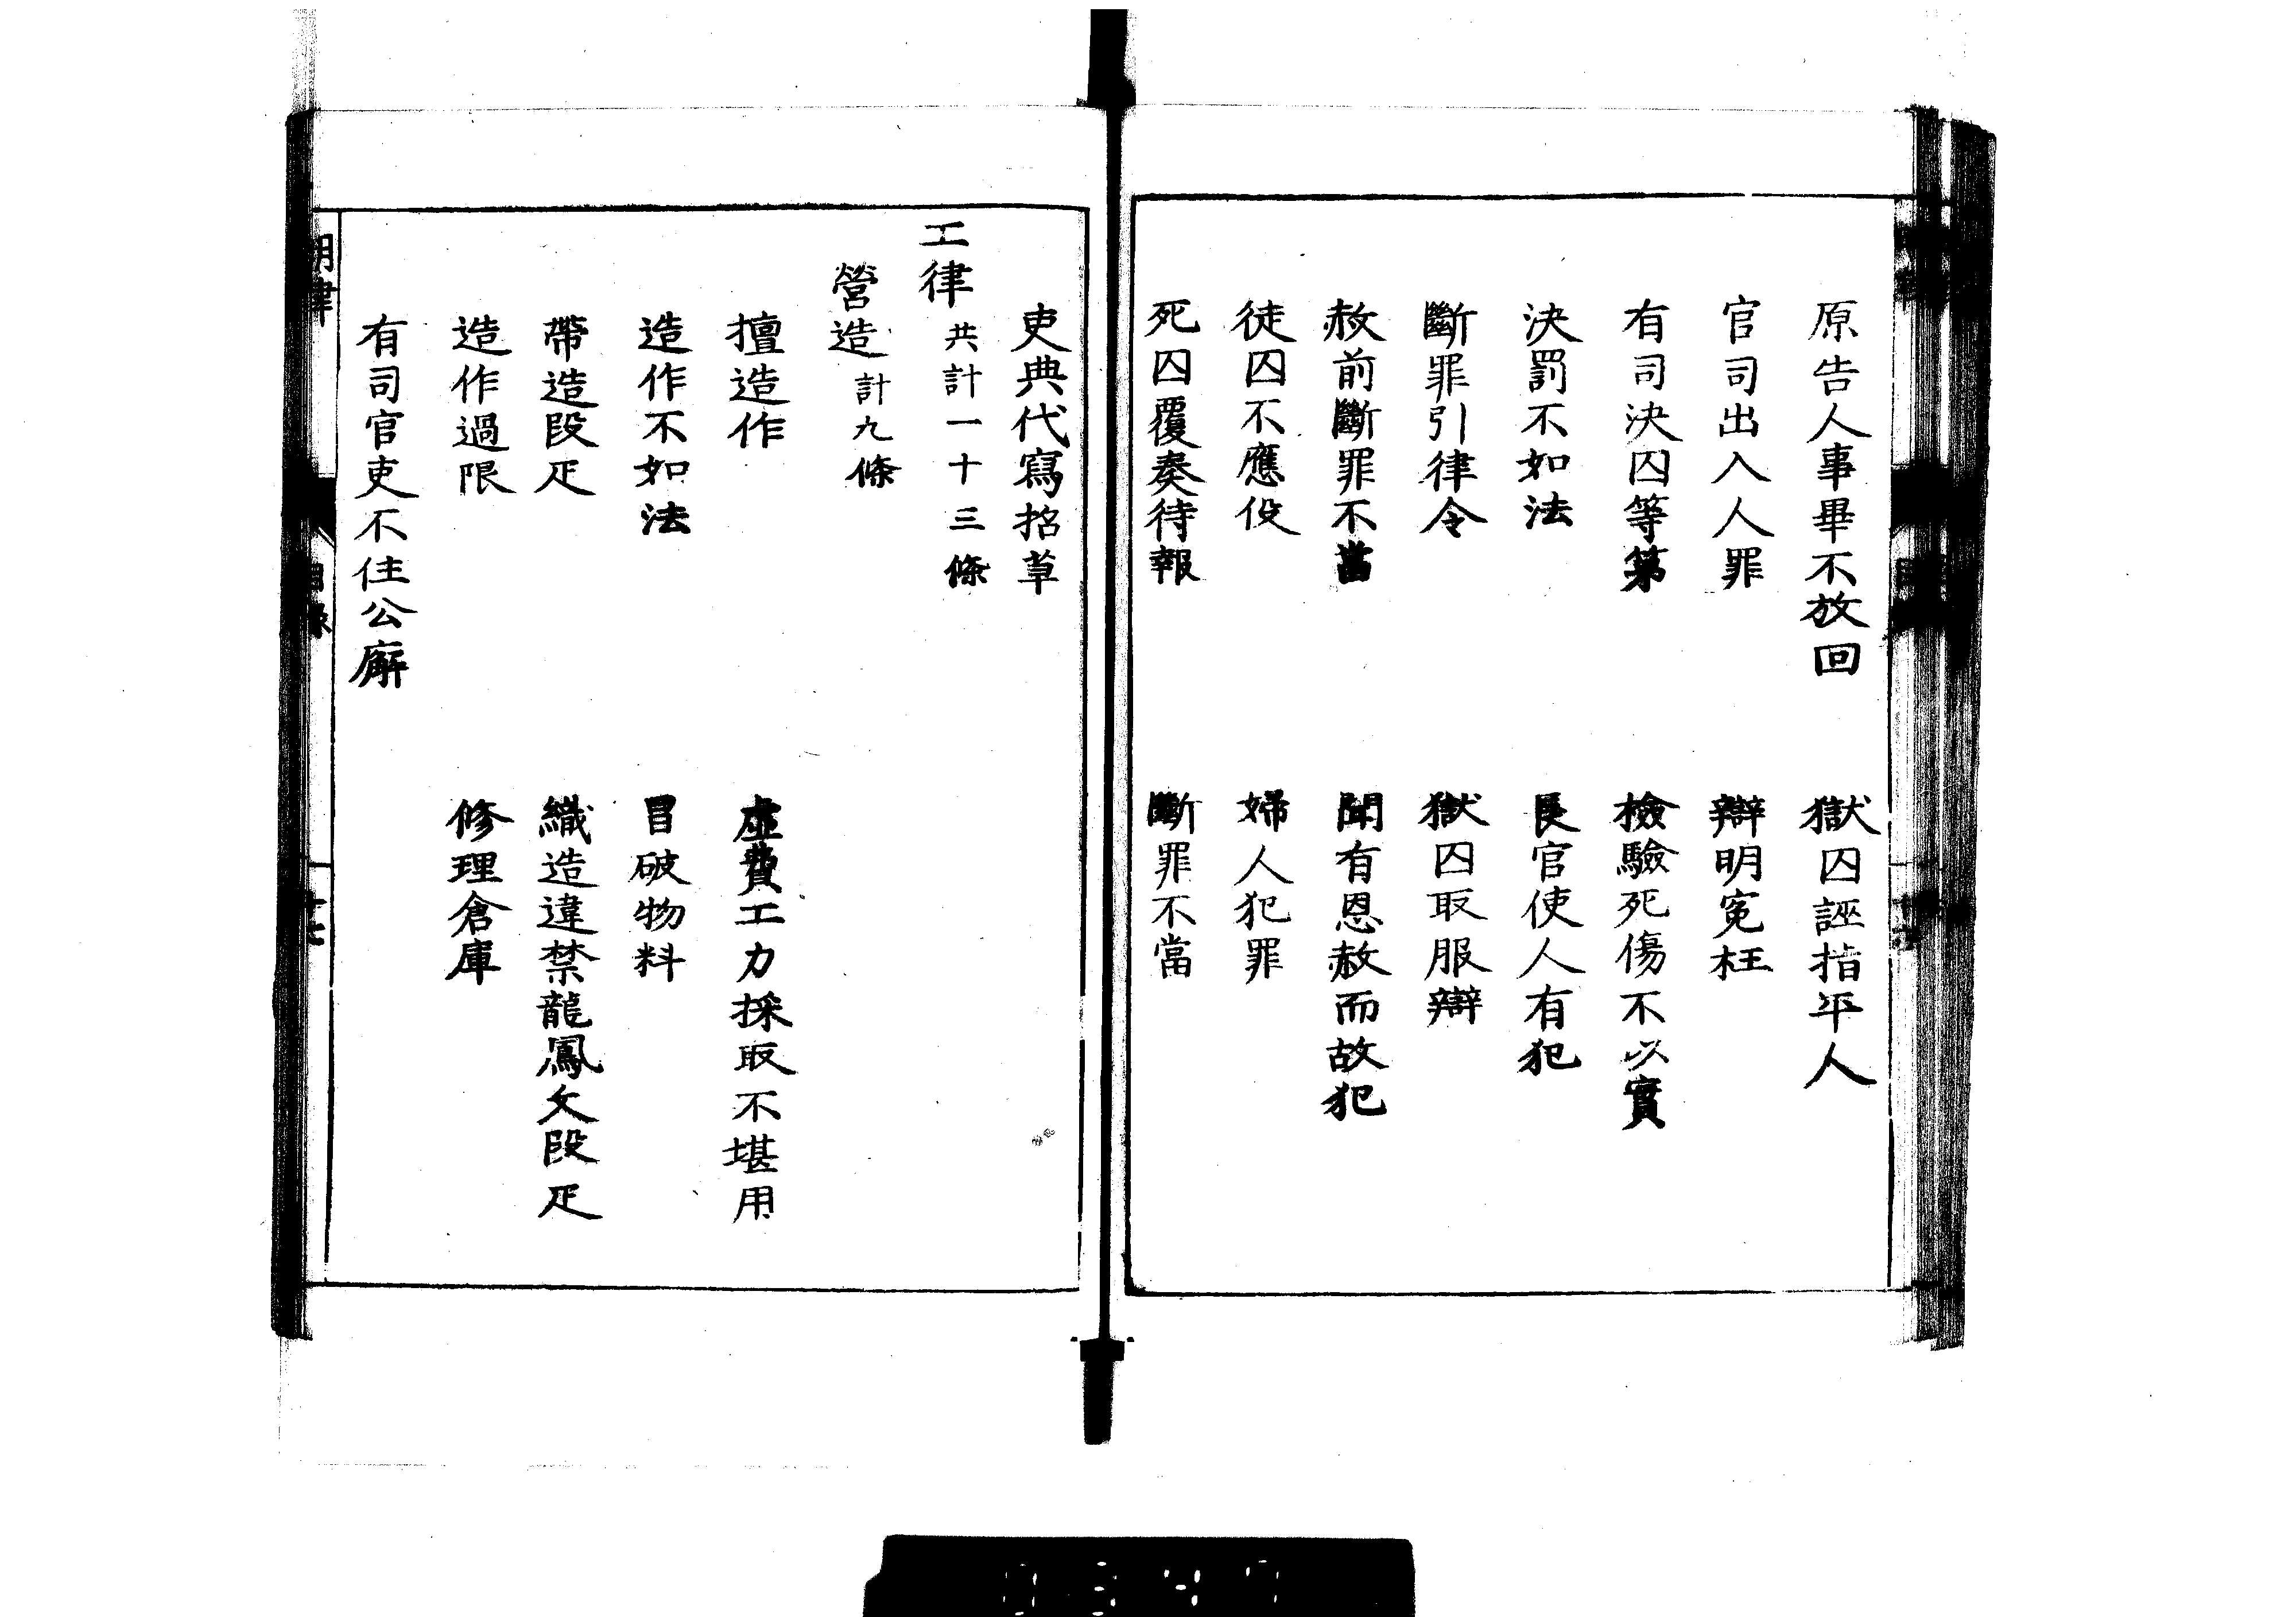 原告人事畢不放回　獄囚誣指平人
官司出入人罪　辯明寃枉
有司決囚等第　檢驗死傷不以實
決罰不如法　長官使人有犯
斷罪引律令　獄囚取服辯
赦前斷罪不當　聞有恩赦而故犯
徒囚不應役　婦人犯罪
死囚覆奏待報　斷罪不當
吏典代寫招草
工律共計一十三條
營造計九條
擅造作　虛費工力採取不堪用
造作不如法　冒破物料
帶造段疋　織造違禁龍鳳文段疋
造作過限　修理倉庫
有司官吏不住公廨
明律　目錄